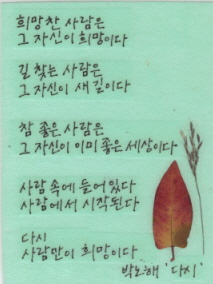 희망찬 사람은
그 자신이 희망이다
길 찾는 사람은
그 자신이 새 길이다
참 좋은 사람은
그 자신이 이미 좋은 세상이다
사람 속에 들어 있다
사람에서 시작된다
다시
사람만이 희망이다
박노해 '다시'